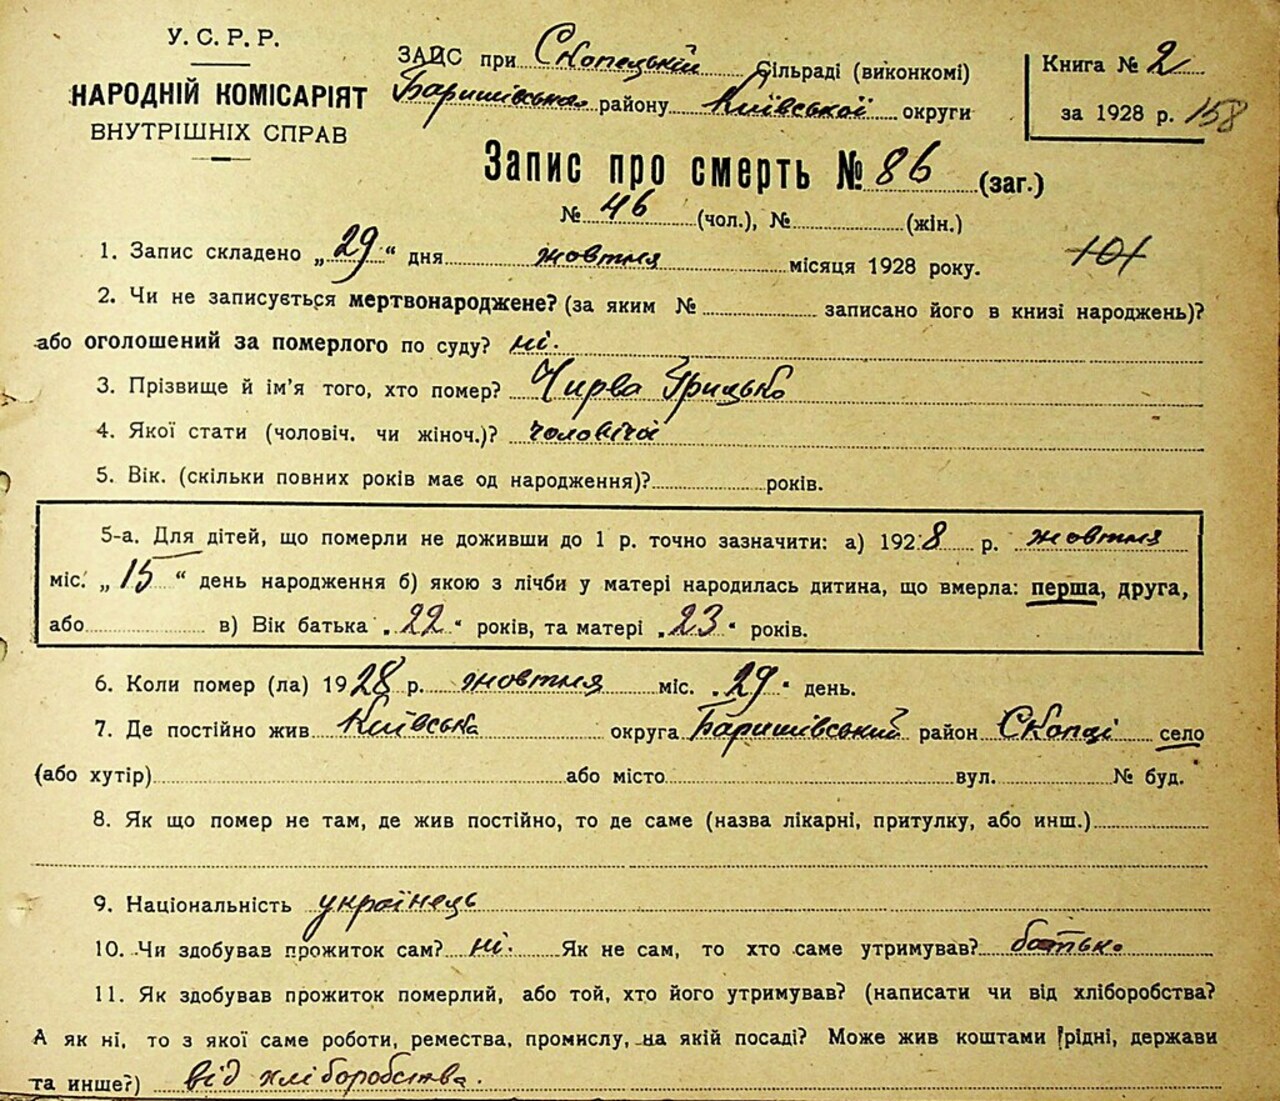 У. С. Р. Р.
НАРОДНІЙ КОМІСАРІЯТ
ВНУТРІШНІХ СПРАВ
ЗАЦС при Скопецькій Сільраді (виконкомі)
Баришівська району Київської округи
Книга № 2
за 1928 р. 158
Запис про смерть № 86 (заг.)
№ 46 (чол.), № (жін.)
1. Запис складено „29“ дня жовтня місяця 1928 року. 101
2. Чи не записується мертвонароджене? (за яким № записано його в книзі народжень)?
або оголошений за померлого по суду? ні.
3. Прізвище й ім'я того, хто помер? Чирва Грицько
4. Якої стати (чоловіч. чи жіноч.)? чоловічої
5. Вік. (скільки повних років має од народження)? років.
5-а. Для дітей, що померли не доживши до 1 р. точно зазначити: а) 1928 р. жовтня
міс. „15“ день народження б) якою з лічби у матері народилась дитина, що вмерла: перша, друга,
або в) Вік батька „22“ років, та матері „23“ років.
6. Коли помер (ла) 1928 р. жовтня міс. „29“ день.
7. Де постійно жив Київська округа Баришівський район Скопці село
(або хутір) або місто вул. № буд.
8. Як що помер не там, де жив постійно, то де саме (назва лікарні, притулку, або инш.)
9. Національність українець
10. Чи здобував прожиток сам? ні. Як не сам, то хто саме утримував? батько
11. Як здобував прожиток померлий, або той, хто його утримував? (написати чи від хліборобства?
А як ні, то з якої саме роботи, ремества, промислу, на якій посаді? Може жив коштами рідні, держави
та инше?) від хліборобства.